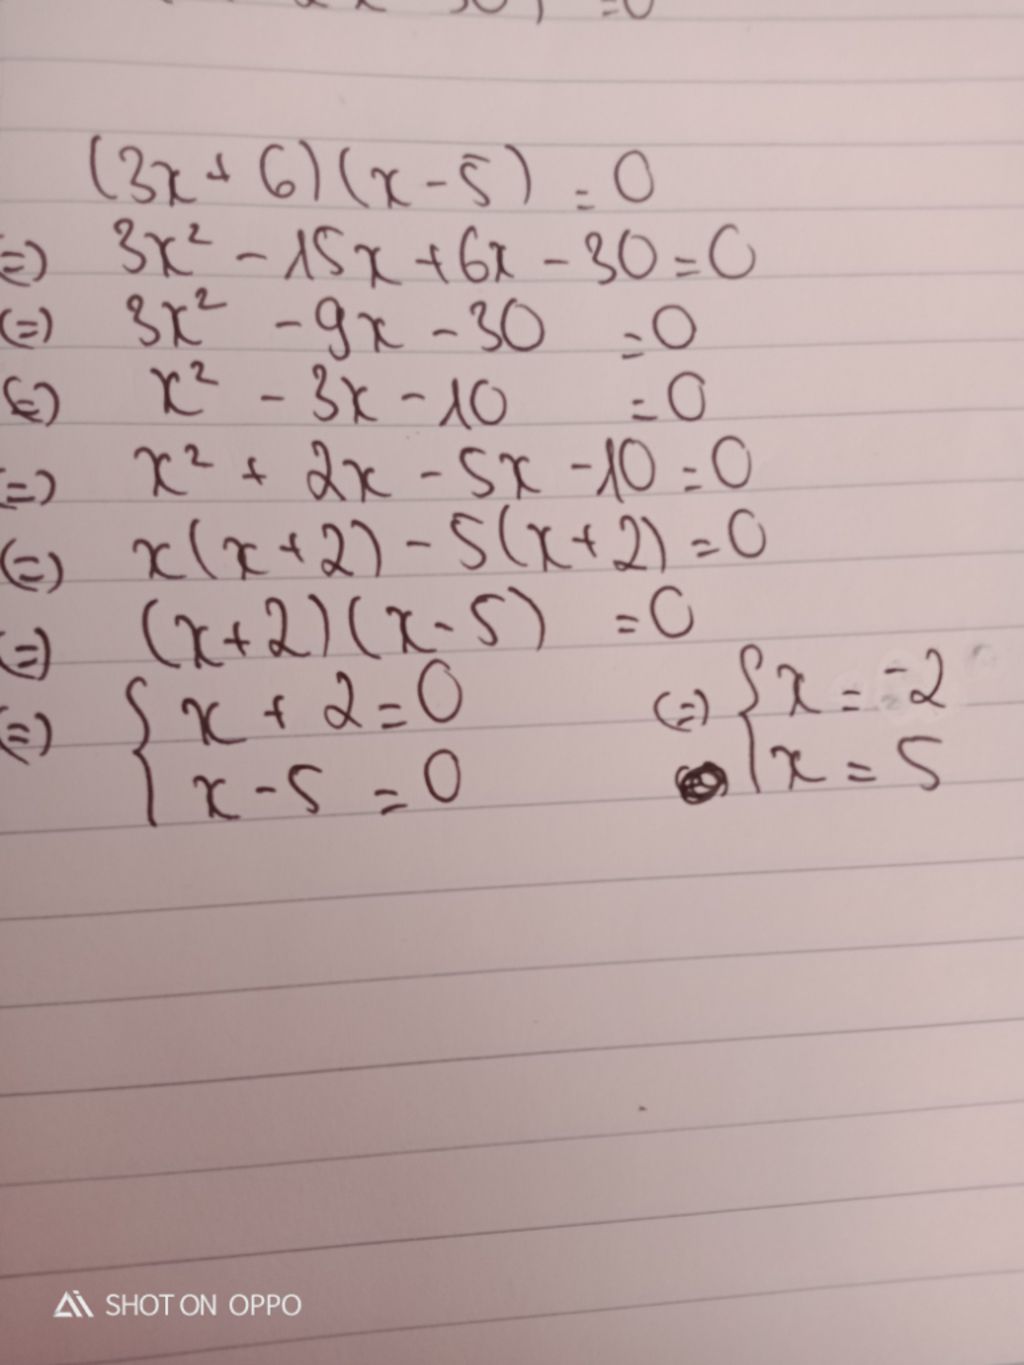 (3x + 6)(x - 5) = 0
(=) 3x² - 15x + 6x - 30 = 0
(=) 3x² - 9x - 30 = 0
(=) x² - 3x - 10 = 0
(=) x² + 2x - 5x - 10 = 0
(=) x(x + 2) - 5(x + 2) = 0
(=) (x + 2)(x - 5) = 0
(=) { x + 2 = 0 (=) { x = -2
x - 5 = 0 x = 5
SHOT ON OPPO